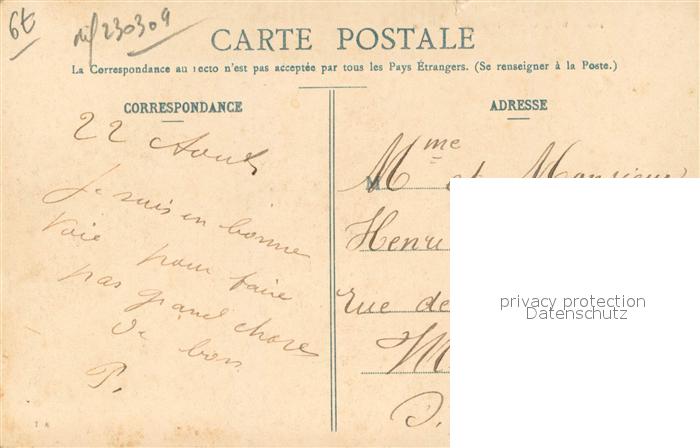 6t
nif230309
CARTE POSTALE
La Correspondance au recto n'est pas acceptée par tous les Pays Étrangers. (Se renseigner à la Poste.)
CORRESPONDANCE
22 Aout
Je suis en bonne
voie pour faire
pas grand chose
de bon
P.
ADRESSE
Mme et Monsieur
Henri
rue de
M
D.
privacy protection
Datenschutz